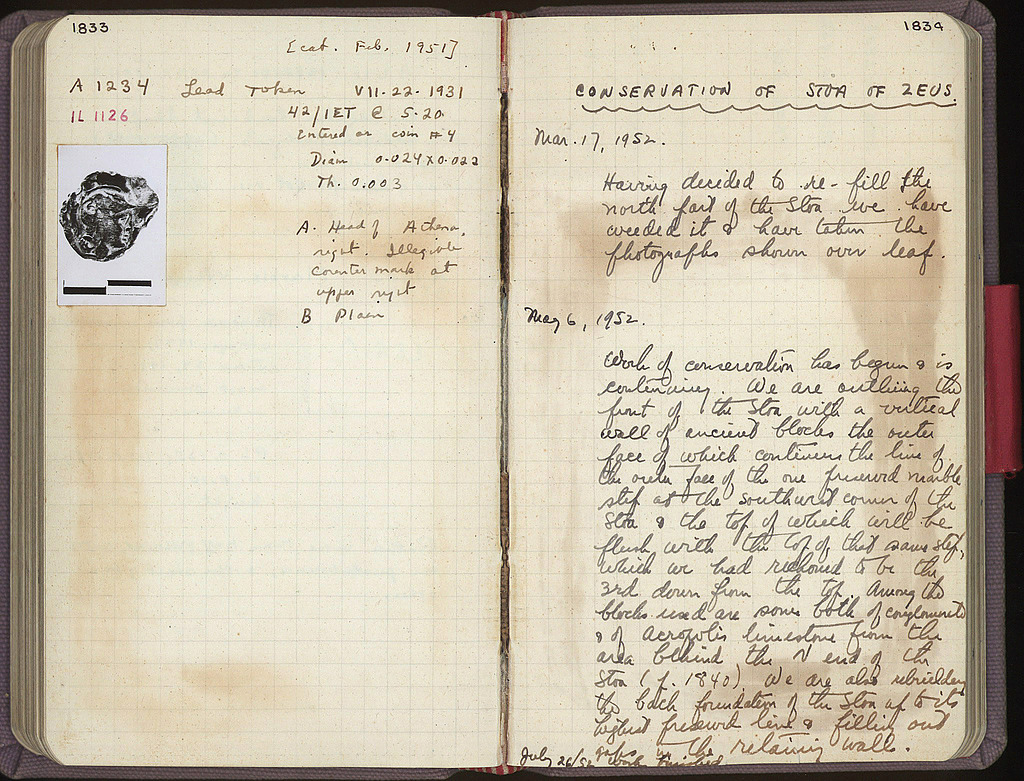 1833
[cat. Feb. 1951]
A 1234 Lead Token VII-22-1931
IL 1126 42/IET @ 5.20
Entered as coin #4
Diam 0.024 x 0.022
Th. 0.003
A. Head of Athena,
right. Illegible
counter mark at
upper right
B Plain
1834
CONSERVATION OF STOA OF ZEUS.
Mar. 17, 1952.
Having decided to re-fill the
north part of the Stoa we have
weeded it & have taken the
photographs shown over leaf.
May 6, 1952.
Work of conservation has begun & is
continuing. We are outlining the
front of the Stoa with a vertical
wall of ancient blocks the outer
face of which continues the line of
the outer face of the one preserved marble
step at the southwest corner of the
Stoa & the top of which will be
flush with the top of that same step,
which we had reckoned to be the
3rd down from the top. Among the
blocks used are some both of conglomerate
& of Acropolis limestone from the
area behind the N end of the
Stoa (p. 1840). We are also rebuilding
the back foundation of the Stoa up to its
highest preserved line & filling out
gaps in the retaining wall.
July 26/52 work finished